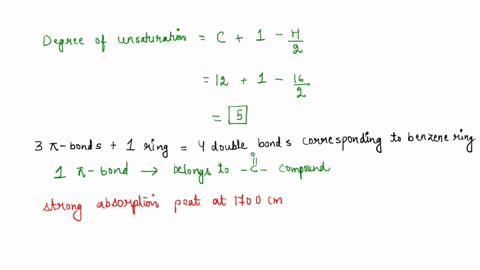 Degree of unsaturation = C + 1 - H/2
= 12 + 1 - 16/2
= 5
3 π-bonds + 1 ring = 4 double bonds corresponding to benzene ring
1 π-bond → belongs to -C- compound
O
strong absorption peat at 1700 cm